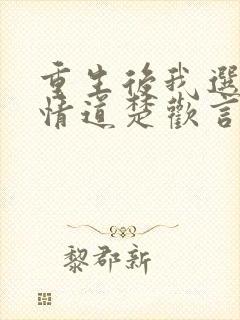 重生後我選
情道楚歡言
黎郡新